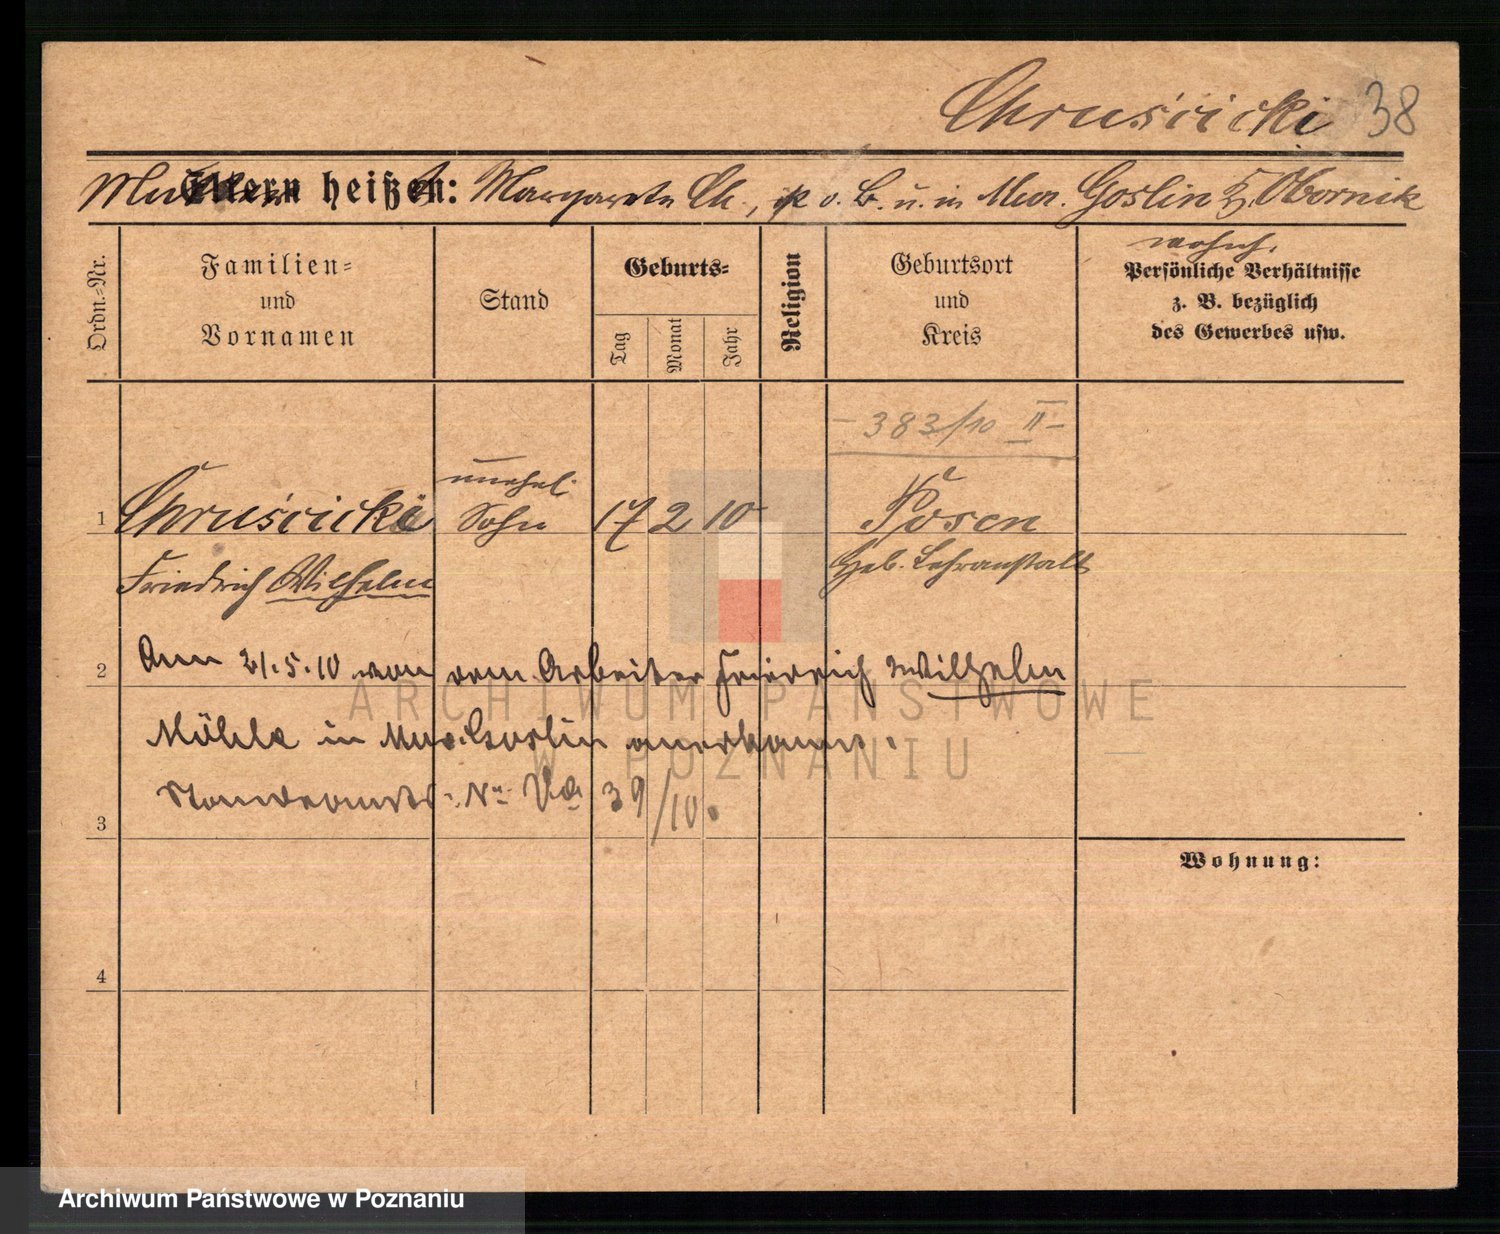 Chruścicki 38
Mutter heißt: Margarete Ch., k. o. B. u. in Mur. Goslin Kr. Obornik
wohnh.
Ordn.-Nr.
Familien-
und
Vornamen
Stand
Geburts-
Tag
Monat
Jahr
Religion
Geburtsort
und
Kreis
Persönliche Verhältnisse
z. B. bezüglich
des Gewerbes usw.
- 383/10 II -
unehel.
1 Chruścicki Sohn 17 2 10 Posen
Friedrich Wilhelm Heb. Lehranstalt
2 Am 21.5.10 von dem Arbeiter Friedrich Wilhelm
Mühle in Mur. Goslin anerkannt.
Standesamts- Nr. Va 39/10.
3
Wohnung:
4
ARCHIWUM PAŃSTWOWE
W POZNANIU
Archiwum Państwowe w Poznaniu